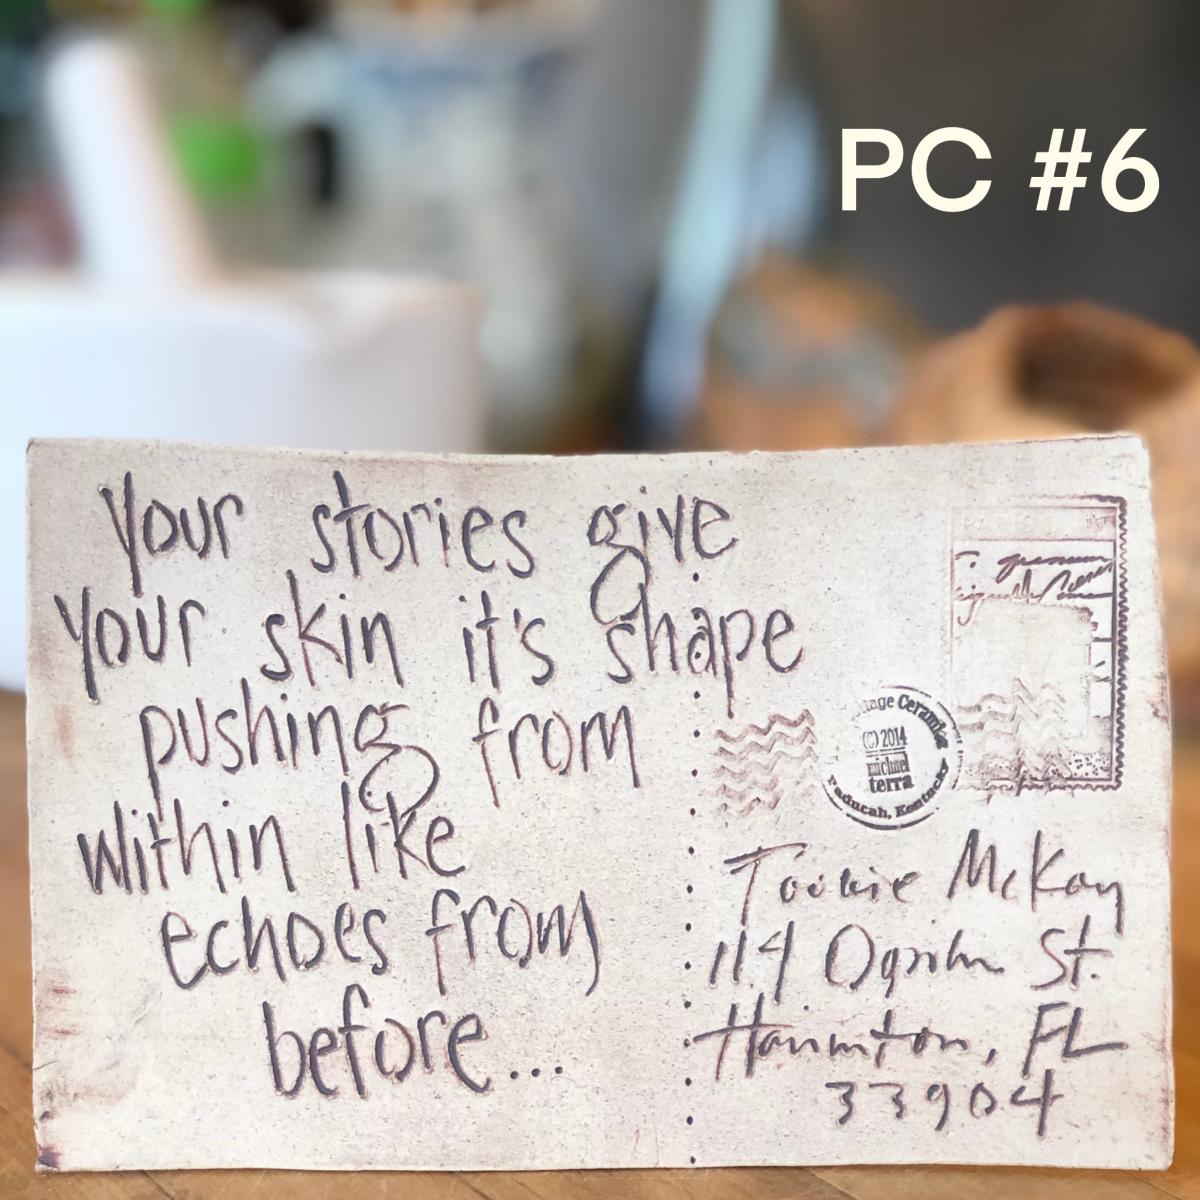 PC #6
Your stories give
Your skin it's shape
pushing from
within like
echoes from
before...
tage Ceramics
(C) 2014
michael
terra
Paducah, Kentucky
McKay
114 St.
FL
33904